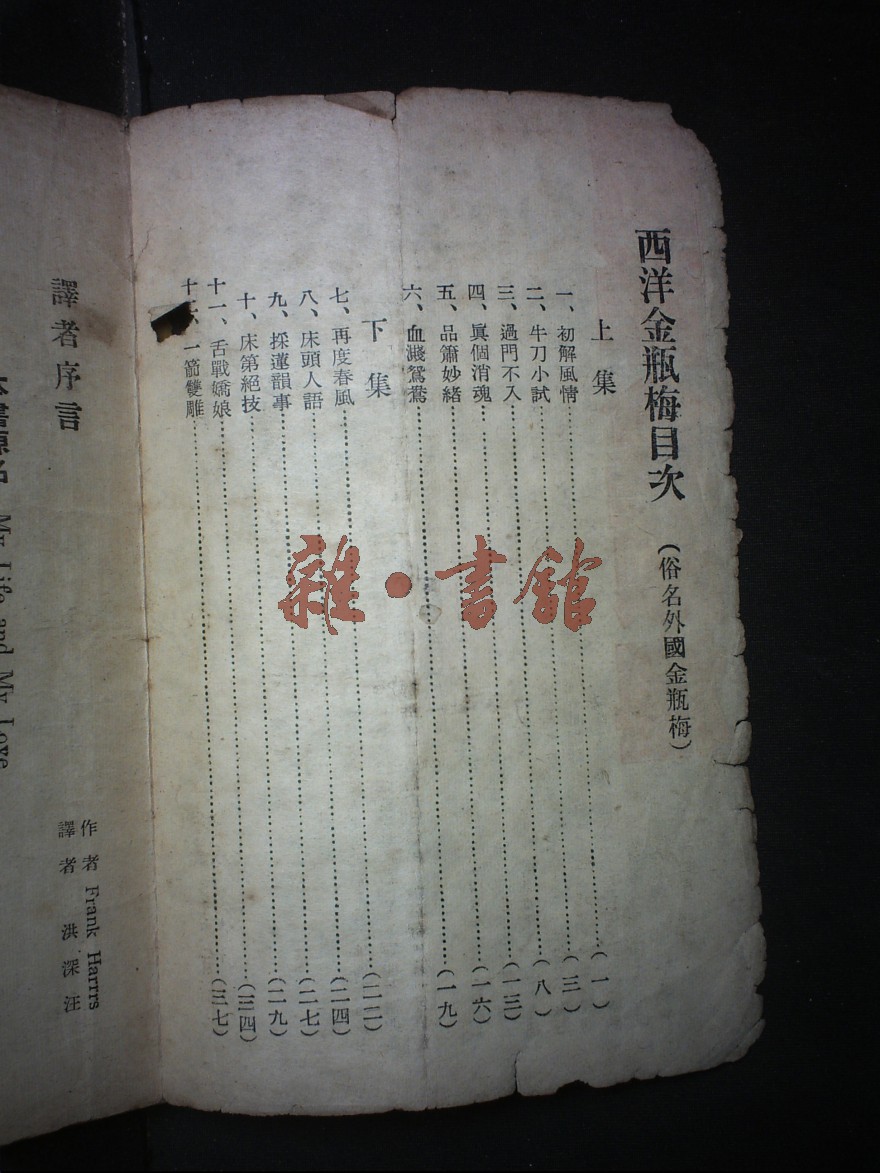 西洋金瓶梅目次 (俗名外國金瓶梅)
上集
一、初解風情……(一)
二、牛刀小試……(三)
三、過門不入……(八)
四、眞個消魂……(一三)
五、品簫妙緒……(一六)
六、血濺鴛鴦……(一九)
下集
七、再度春風……(二二)
八、床頭人語……(二四)
九、採蓮韻事……(二七)
十、床第絕技……(二九)
十一、舌戰嬌娘……(三四)
十、一箭雙雕……(三七)
譯者序言
作者 Frank Harrrs
譯者 洪深汪
書原名 My Life and My Love
雜·書館